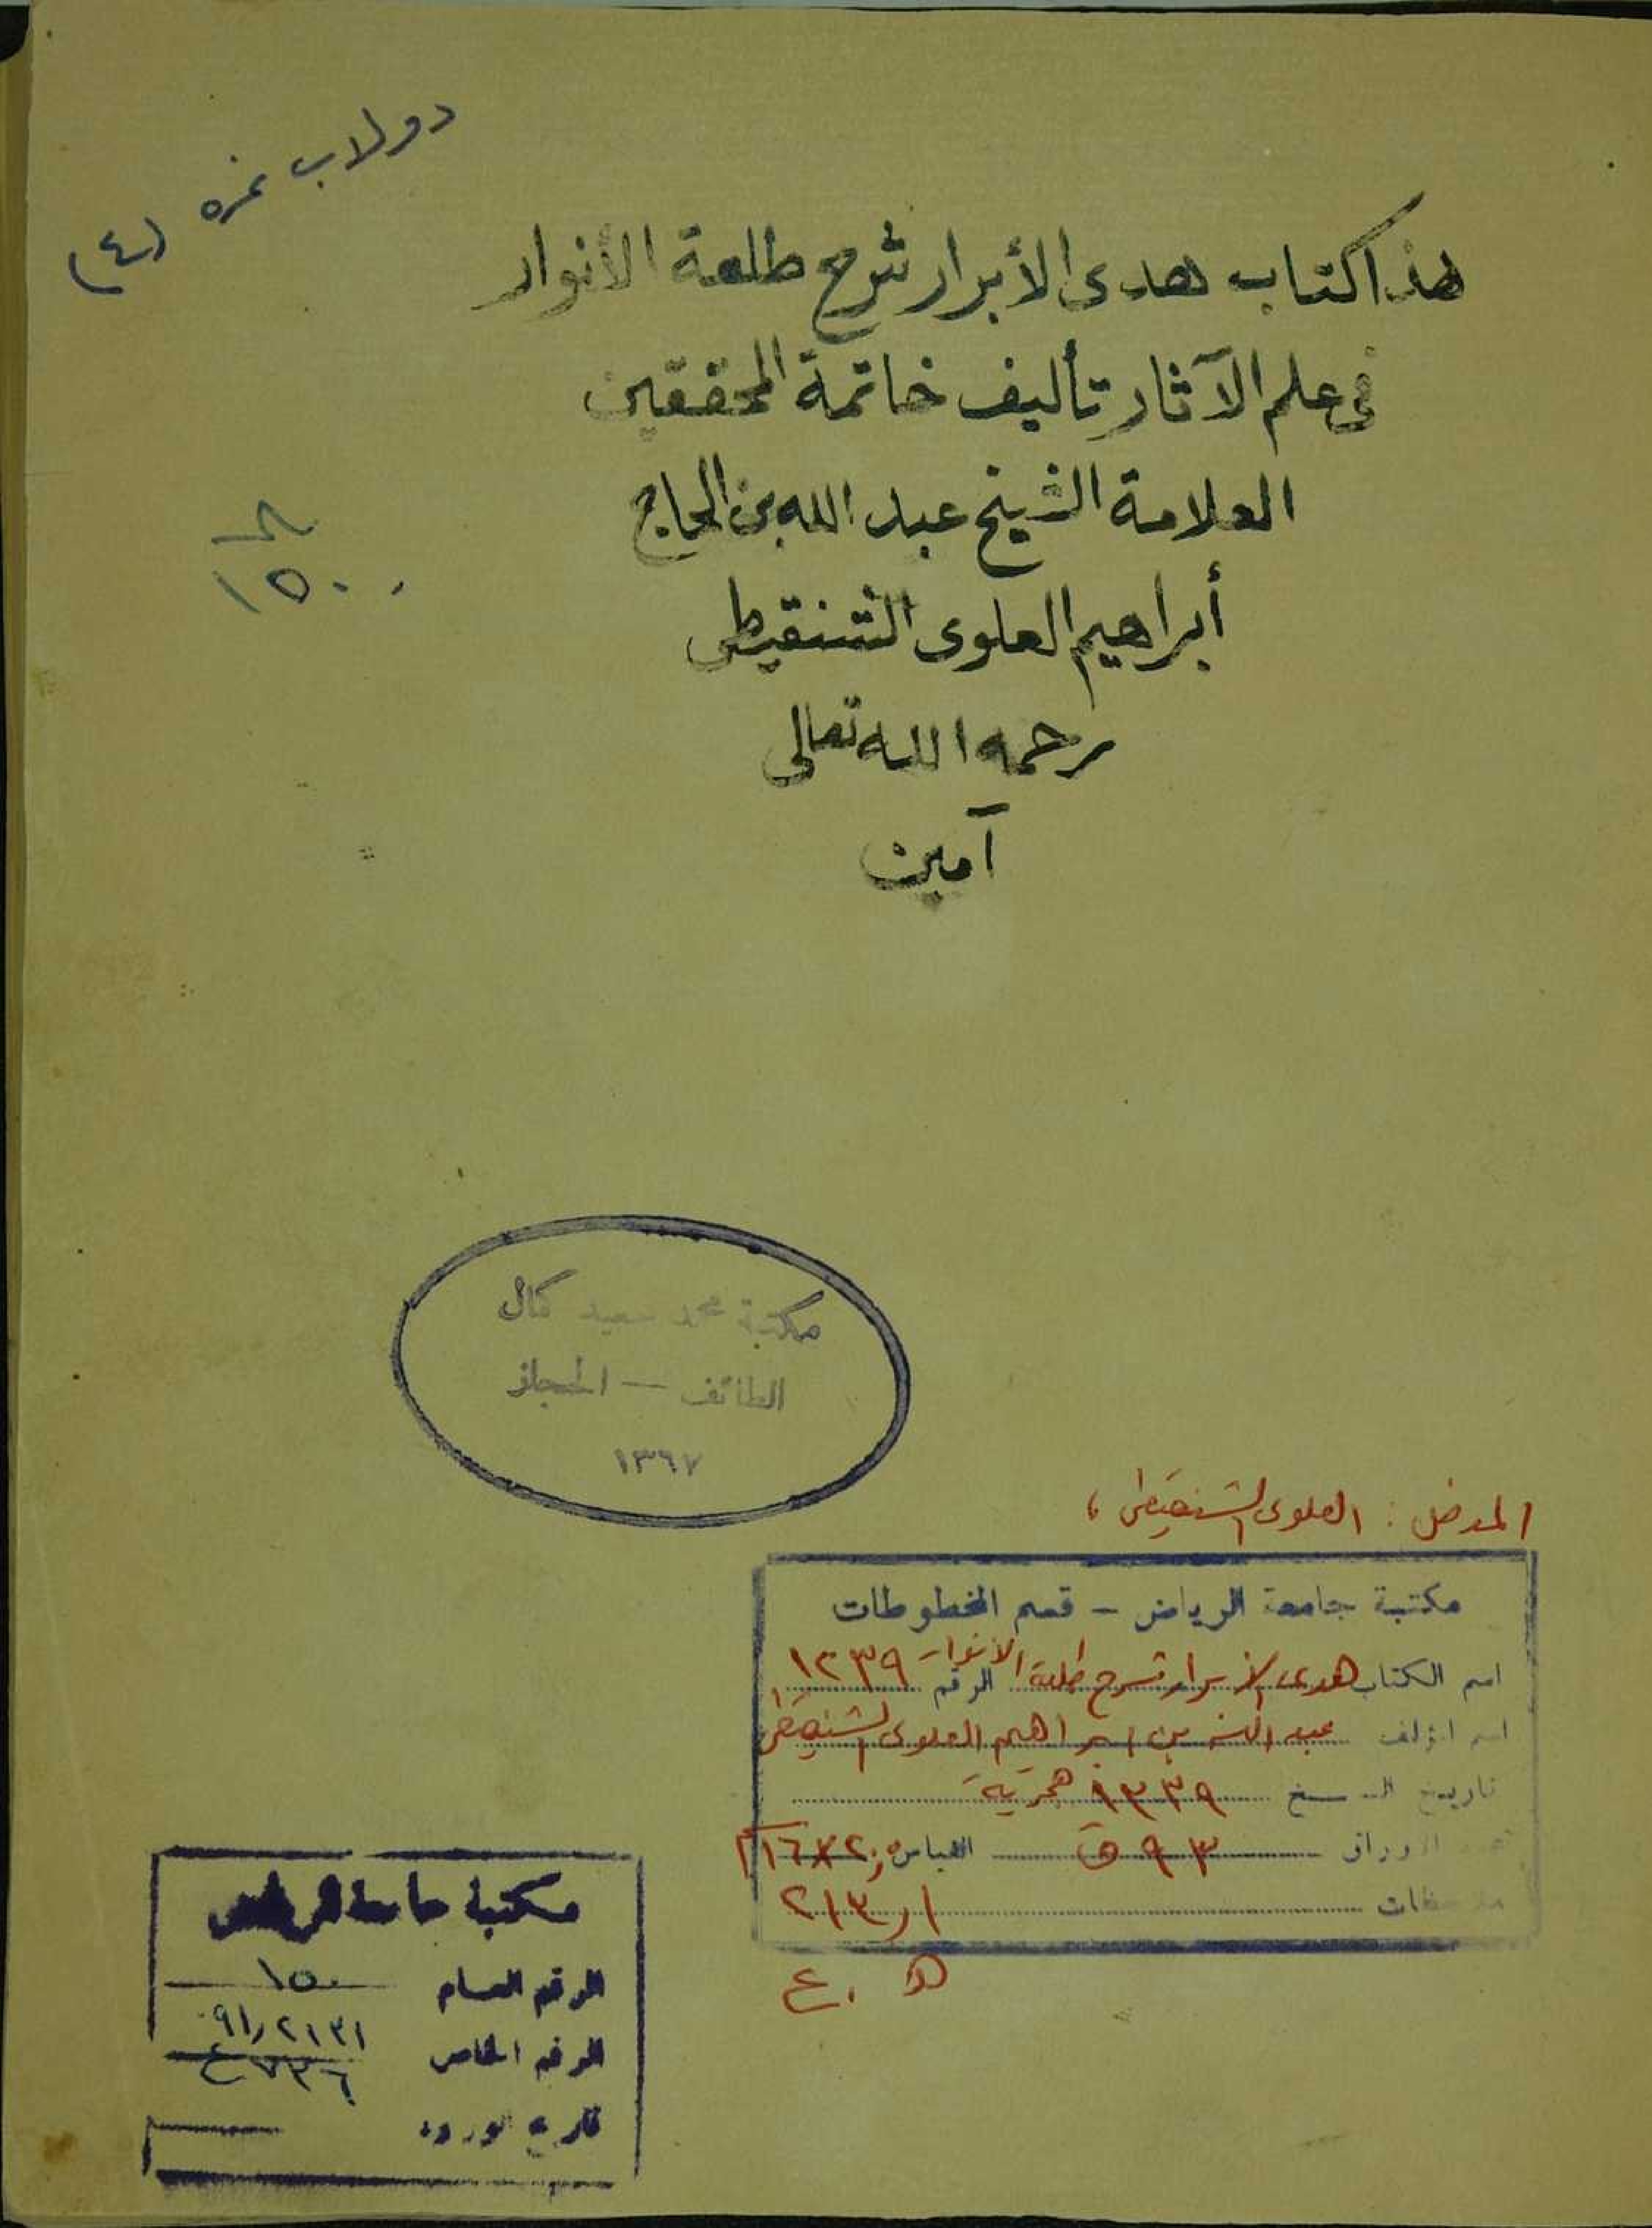 دولاب نمره (٤)
هذا كتاب هدى الأبرار شرح طلعة الأنوار
في علم الآثار تأليف خاتمة المحققين
العلامة الشيخ عبد الله بن الحاج
١٥٠٠
أبراهيم العلوى الشنقيطى
رحمه الله تعالى
آمين
مكتبة محمد سعيد كمال
الطائف - الحجاز
١٣٦٧
المدخل : العلوى الشنقيطى ،
مكتبة جامعة الرياض - قسم المخطوطات
اسم الكتاب هدى الأبرار شرح طلعة الأنوار الرقم ١٢٣٩
اسم المؤلف عبد الله بن ابراهيم العلوى الشنقيطى
تاريخ النسخ ١٣٣٩ هجرية
عدد الأوراق ٩٣ ق القياس
ملاحظات ٢١٣٫١
ه . ع
مكتبة جامعة الرياض
الرقم العام ١٥٠
الرقم الخاص ٩١٫٢١٣١
٤٧٣٦
تاريخ الورود